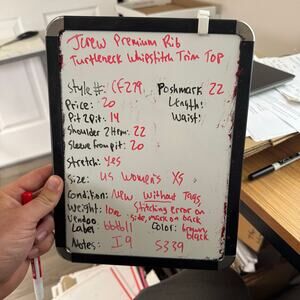 JCrew Premium Rib
Turtleneck Whipstitch Trim Top
Style #: CF279 Poshmark 22
Price: 20 Length:
Pit 2 Pit: 14 Waist:
Shoulder 2 Hem: 22
Sleeve from pit: 20
Stretch: Yes
Size: US Women's XS
Condition: New Without Tags
Weight: Stitching error on
side, mark on back
Vendoo
Label: Color: brown,
black
Notes: I9 5339